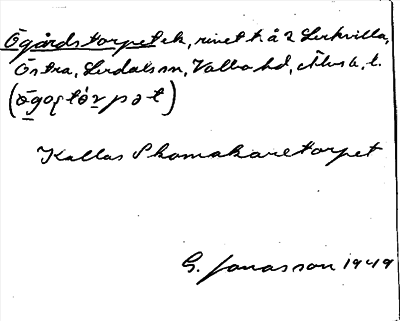 Ögårdstorpet ek, rivet t. å 2 Lerkvilla,
Östra, Lerdals sn, Valbo hd, Älvsb. l.
(ōgoʂtɷ́r pət)
Kallas Skomakaretorpet
G. Jonasson 1949